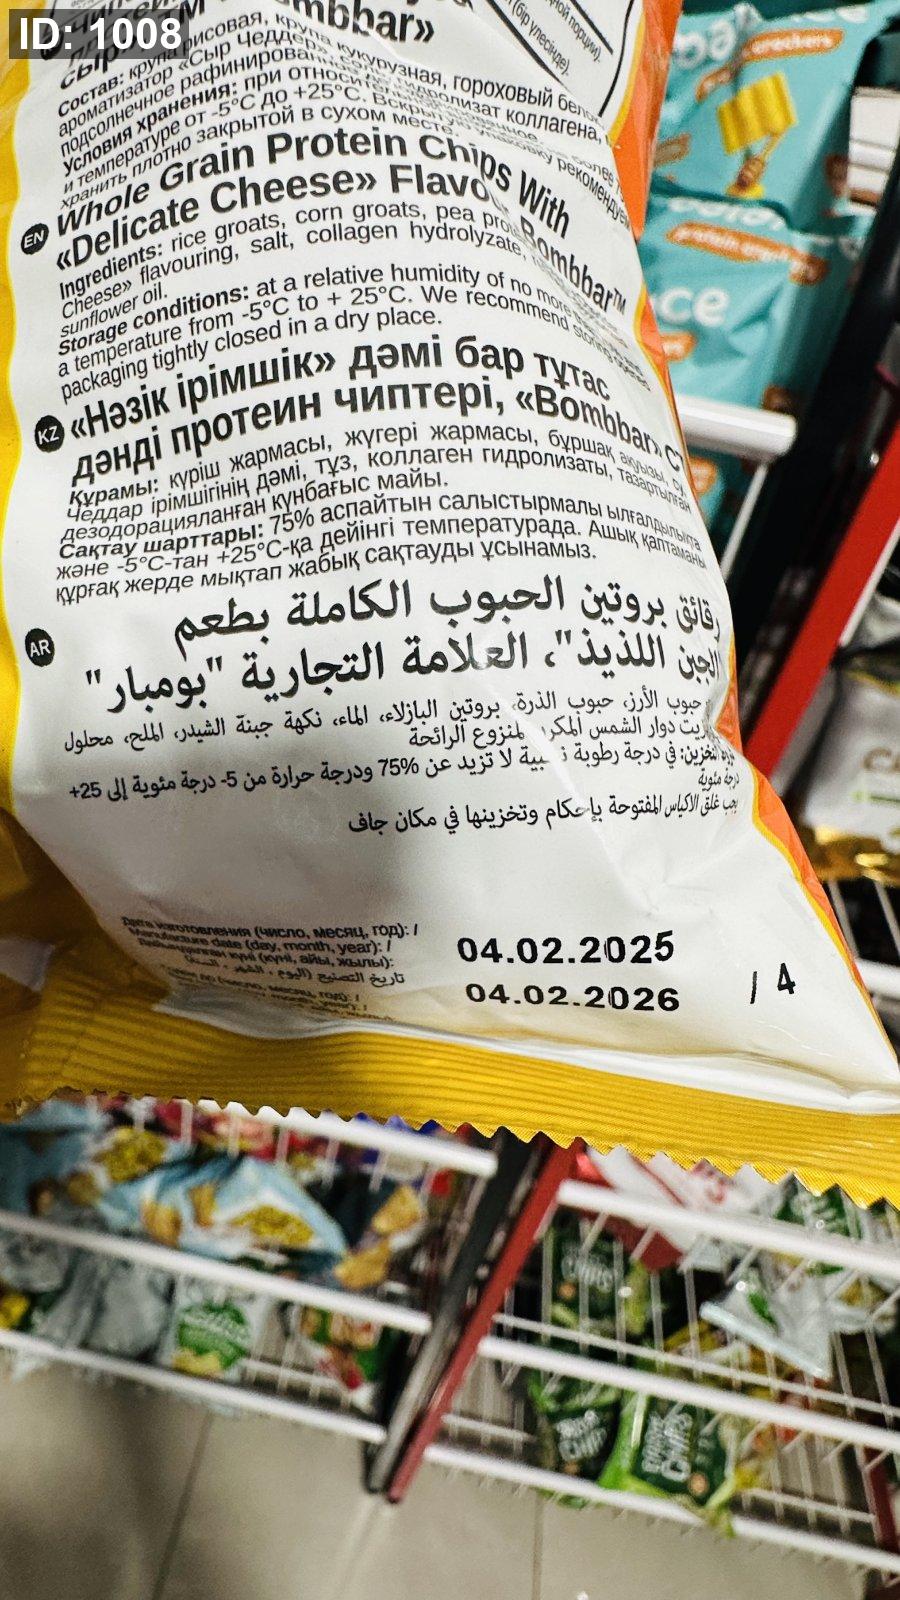 ID: 1008
mbbar»
(бір үлесінде).
Состав: крупа рисовая, крупа кукурузная, гороховый
ароматизатор «Сыр Чеддер», гидролизат коллагена,
подсолнечное рафинированное
Условия хранения: при относительной
и температуре от -5°C до +25°C. рекомендуем
хранить плотно закрытой в сухом месте.
EN
Whole Grain Protein Chips With
«Delicate Cheese» Flavour, Bombbar™
Ingredients: rice groats, corn groats, pea
Cheese» flavouring, salt, collagen hydrolyzate,
sunflower oil.
Storage conditions: at a relative humidity of no more
a temperature from -5°C to + 25°C. We recommend storing
packaging tightly closed in a dry place.
KZ
«Нәзік ірімшік» дәмі бар тұтас
дәнді протеин чиптері, «Bombbar»
Құрамы: күріш жармасы, жүгері жармасы, бұршақ ақуызы, су,
Чеддар ірімшігінің дәмі, тұз, коллаген гидролизаты, тазартылған
дезодорацияланған күнбағыс майы.
Сақтау шарттары: 75% аспайтын салыстырмалы ылғалдылықта
және -5°C-тан +25°C-қа дейінгі температурада. Ашық қаптаманы
құрғақ жерде мықтап жабық сақтауды ұсынамыз.
AR
رقائق بروتين الحبوب الكاملة بطعم
الجبن اللذيذ"، العلامة التجارية "بومبار"
حبوب الأرز، حبوب الذرة، بروتين البازلاء، الماء، نكهة جبنة الشيدر، الملح، محلول
زيت دوار الشمس المكرر منزوع الرائحة
في درجة رطوبة نسبية لا تزيد عن 75% ودرجة حرارة من 5- درجة مئوية إلى 25+
درجة مئوية
يجب غلق الاكياس المفتوحة بإحكام وتخزينها في مكان جاف
Дата изготовления (число, месяц, год): /
Manufacture date (day, month, year): /
(күні, айы, жылы):
تاريخ التصنيع (اليوم ، الشهر ، السنة)
04.02.2025
04.02.2026
/ 4
ce